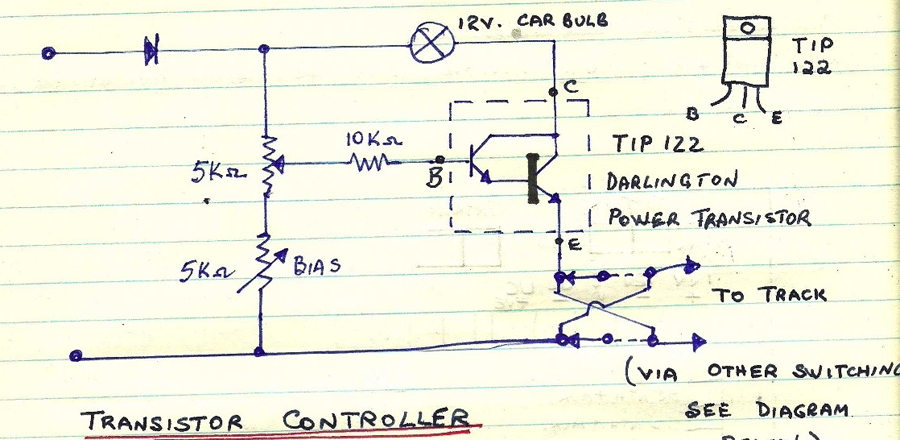 12V. CAR BULB
TIP
122
B C E
C
10KΩ
5KΩ
B
TIP 122
DARLINGTON
POWER TRANSISTOR
E
5KΩ
BIAS
TO TRACK
(VIA OTHER SWITCHING
SEE DIAGRAM
TRANSISTOR CONTROLLER